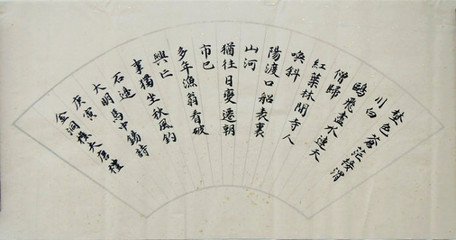 埜色蒼茫接渭
川白
鷗飛盡水連天
僧歸
紅葉林間寺人
喚斜
陽渡口船表裏
山河
猶往日變遷朝
市已
多年漁翁看破
興亡
事獨坐秋風釣
石邊
大明馬中錫詩
庚寅
金洞樵夫唐禮